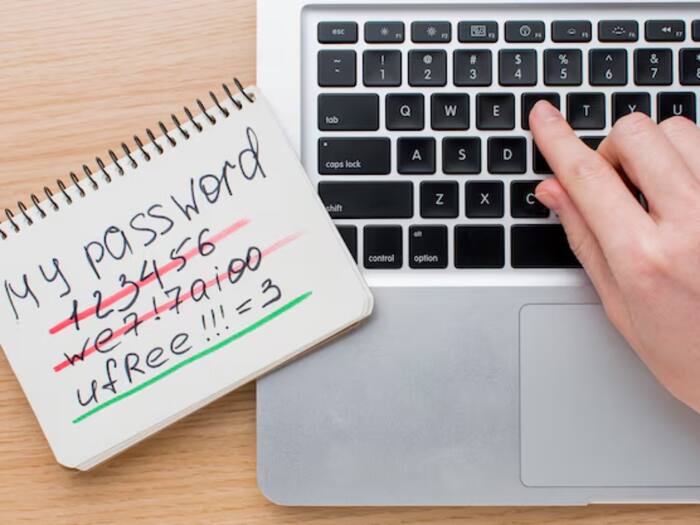 My password
123456
we7!7aioo
ufRee!!!=3
esc F1 F2 F3 F4 F5 F6
~ ! 1 @ 2 # 3 $ 4 % 5 ^ 6 & 7
tab Q W E T Y U
caps lock A S D
shift Z X C
control alt option